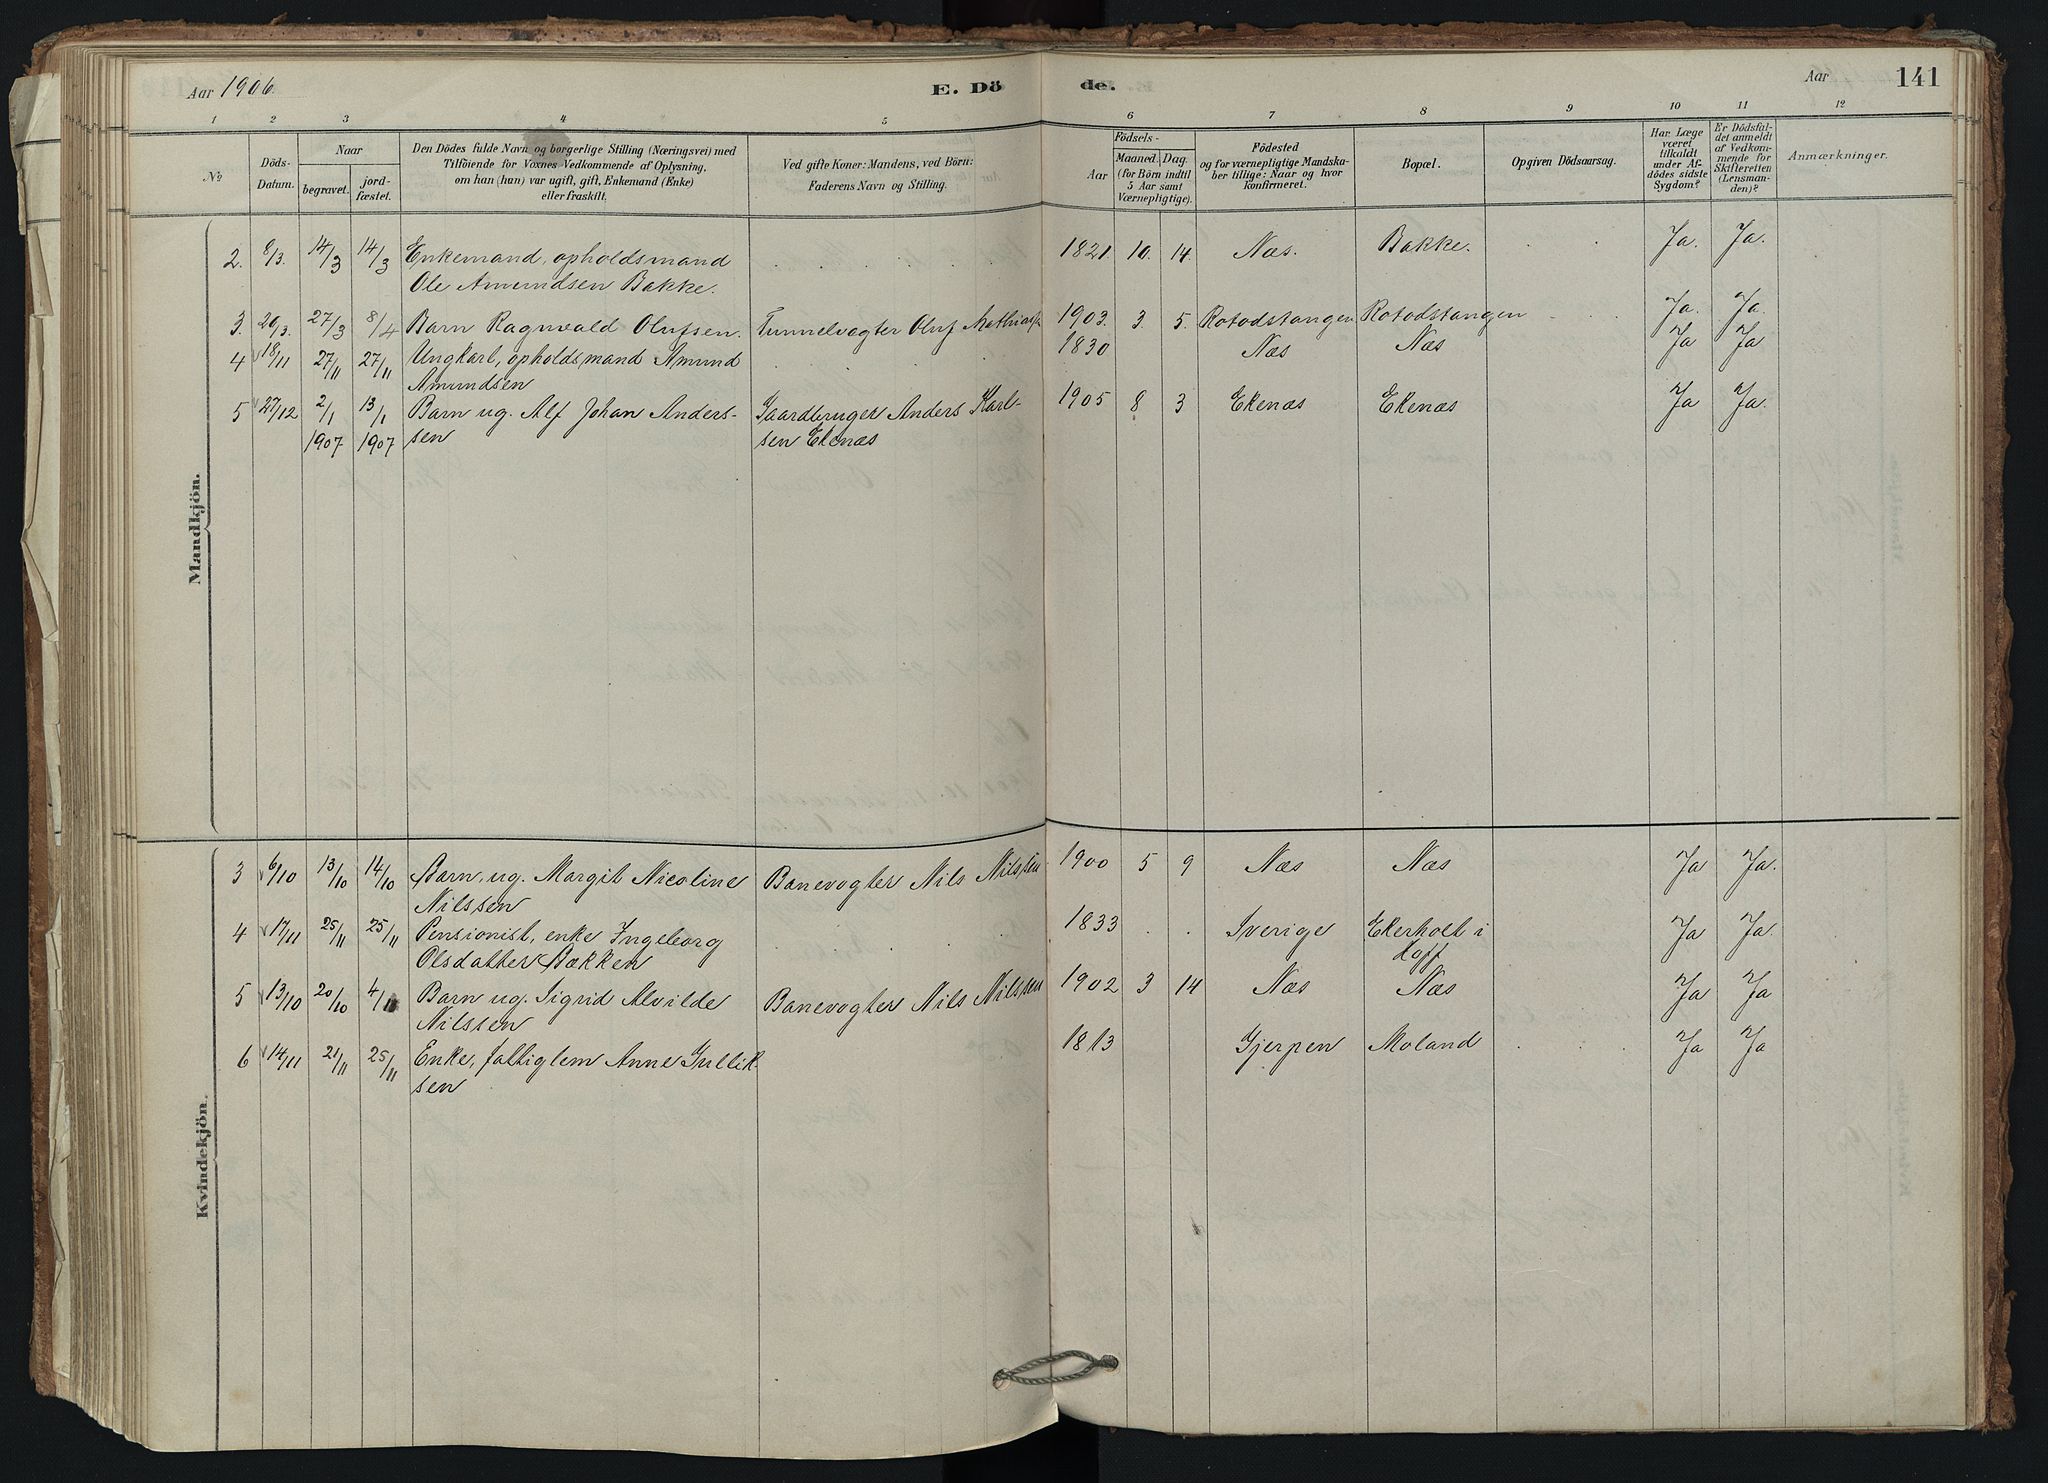 Aar 1906.
E. Dö
de.
Aar
141
1 2 3 4 5
6 7 8 9 10 11 12
No
Döds-
Datum.
Naar
begravet.
jord-
fæstet.
Den Dödes fulde Navn og borgerlige Stilling (Næringsvei) med
Tilföiende for Voxnes Vedkommende af Oplysning,
om han (hun) var ugift, gift, Enkemand (Enke)
eller fraskilt.
Ved gifte Koner: Mandens, ved Börn:
Faderens Navn og Stilling.
Födsels-
Aar
Maaned. Dag.
(for Börn indtil
5 Aar samt
Værnepligtige).
Födested
og for værnepligtige Mandska-
ber tillige: Naar og hvor
konfirmeret.
Bopæl.
Opgiven Dödsaarsag.
Har Læge
været
tilkaldt
under Af-
dödes sidste
Sygdom?
Er Dödsfal-
det anmeldt
af Vedkom-
mende for
Skifteretten
(Lensman-
den)?
Anmærkninger.
Mandkjön.
2. 8/3. 14/3 14/3 Enkemand, opholdsmand 1821. 10. 14. Næs. Bakke. Ja. Ja.
Ole Amundsen Bakke.
3. 20/3. 27/3 8/4 Barn Ragnvald Olufsen. Tunnelvogter Oluf Mathias 1903. 3. 5. Rotodstangen Rotodstangen Ja. Ja.
4 18/11 27/11 27/11 Ungkarl, opholdsmand Amund 1830 Næs Næs Ja Ja
Amundsen
5 27/12 2/1 13/1 Barn ug. Alf Johan Anders- Gaardbruger Anders Karl- 1905 8 3 Ekenæs Ekenæs Ja Ja.
1907 1907 sen sen Ekenæs
Kvindekjön.
3 6/10 13/10 14/10 Barn, ug. Margit Nicoline Banevogter Nils Nilssen 1900 5 9 Næs Næs Ja Ja.
Nilssen
4 17/11 25/11 25/11 Pensionist, enke Ingeborg 1833 . . Sverige Ekerholt i Ja Ja.
Olsdatter Bækken Hoff
5 13/10 20/10 4/11 Barn ug. Sigrid Alvilde Banevogter Nils Nilssen 1902 3 14 Næs Næs Ja Ja
Nilssen
6 14/11 21/11 25/11 Enke, fattiglem Anne Gullik- 1813 Gjerpen Moland Ja Ja
sen